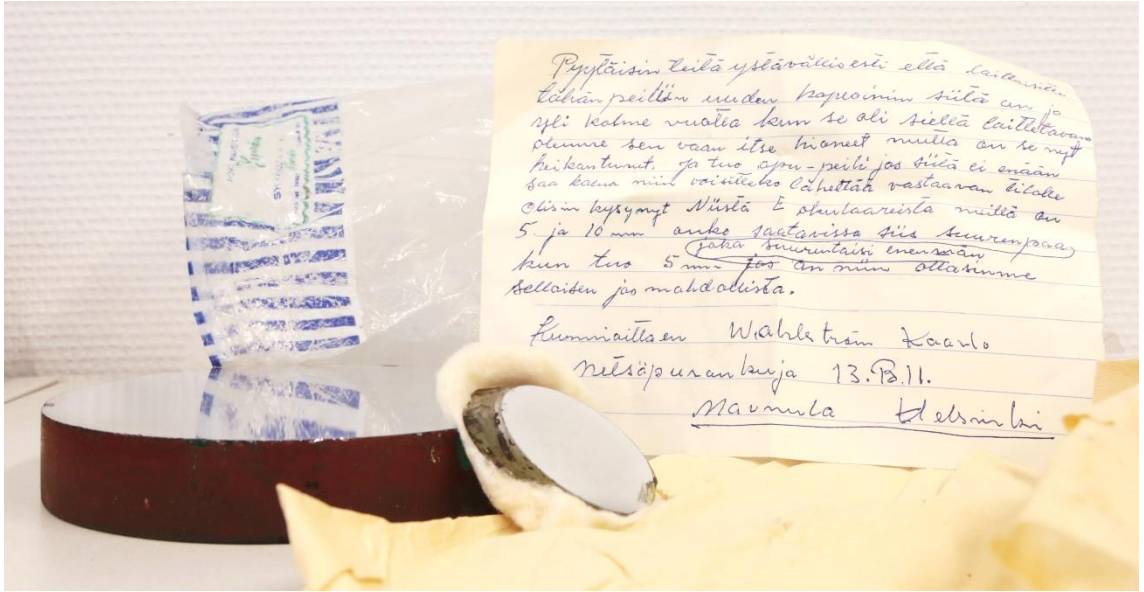 Pyytäisin teitä ystävällisesti että laittaisitte
tähän peiliin uuden hopeoinin siitä on jo
yli kolme vuotta kun se oli siellä laitettavana
olemme sen vaan itse hioneet mutta on se nyt
heikantunut. ja tuo apu-peili jos siitä ei enään
saa kalua niin voisitteko lähettää vastaavan tilalle
olisin kysynyt Niistä E okulaareista meillä on
5. ja 10 mm onko saatavissa siis suurenpaa
joka suurentaisi enemmän
kun tuo 5 mm jos on niin ottasimme
sellaisen jos mahdollista.
Kunnioittaen Wahlström Kaarlo
Metsäpuronkuja 13.B.11.
Maunula Helsinki